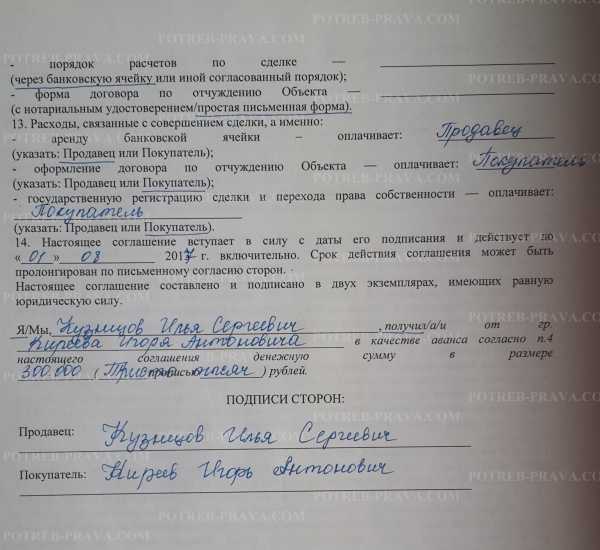 - порядок расчетов по сделке —
(через банковскую ячейку или иной согласованный порядок);
- форма договора по отчуждению Объекта —
(с нотариальным удостоверением/простая письменная форма).
13. Расходы, связанные с совершением сделки, а именно:
- аренду банковской ячейки – оплачивает: Продавец
(указать: Продавец или Покупатель);
- оформление договора по отчуждению Объекта — оплачивает: Покупатель
(указать: Продавец или Покупатель);
- государственную регистрацию сделки и перехода права собственности — оплачивает:
Покупатель
(указать: Продавец или Покупатель).
14. Настоящее соглашение вступает в силу с даты его подписания и действует до
« 01 » 08 2017 г. включительно. Срок действия соглашения может быть
пролонгирован по письменному согласию сторон.
Настоящее соглашение составлено и подписано в двух экземплярах, имеющих равную
юридическую силу.
Я/Мы, Кузнецов Илья Сергеевич, получил/а/и от гр.
Киреева Игоря Антоновича в качестве аванса согласно п.4
настоящего соглашения денежную сумму в размере
300.000 (Триста прописью тысяч) рублей.
ПОДПИСИ СТОРОН:
Продавец: Кузнецов Илья Сергеевич
Покупатель: Киреев Игорь Антонович
POTREB-PRAVA.COM